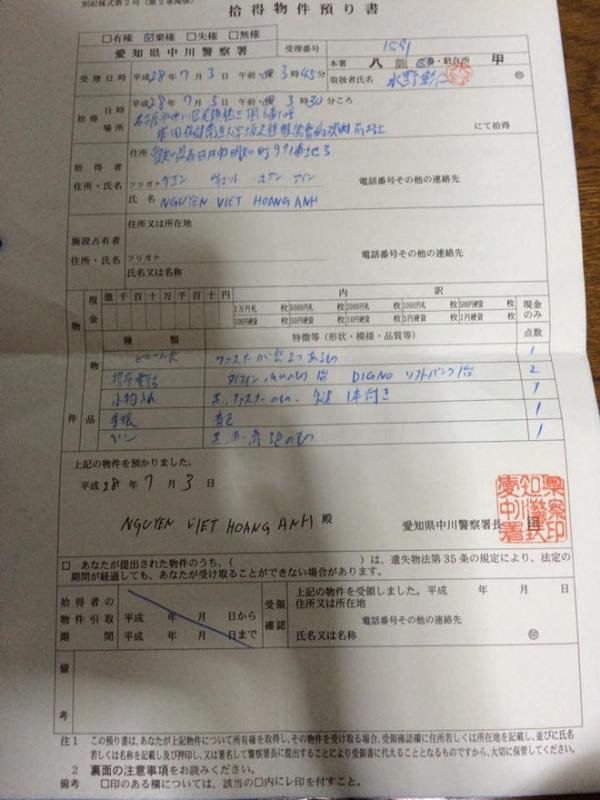 別記様式第2号(第2条関係)
拾得物件預り書
□有権 ☑棄権 □失権 □無権
愛知県中川警察署
受理番号
本署 八熊 交番・駐在所 甲
受理日時 平成28年7月3日 午前・後 3時45分
取扱者氏名 水野
拾得 日時 場所
平成28年7月3日 午前・後 3時30分ころ
にて拾得
拾得者 住所・氏名
住所 愛知県春日井市明知町991番地3
フリガナ グエン ヴィエト ホアン アイン
電話番号その他の連絡先
氏名 NGUYEN VIET HOANG ANH
施設占有者 住所・氏名
住所又は所在地
フリガナ
電話番号その他の連絡先
氏名又は名称
物件
現金 億千百十万千百十円 内訳 現金のみ
1万円札 枚 5000円札 枚 2000円札 枚 1000円札 枚 500円硬貨 枚
100円硬貨 枚 50円硬貨 枚 10円硬貨 枚 5円硬貨 枚 1円硬貨 枚
物品 種類 特徴等(形状・模様・品質等) 点数
ファスナーが 2つあるもの 1
携帯電話 1台 DIGNO ソフトバンク 1台 2
小物入れ 黒、ファスナーのもの、 1本付き 1
手帳 青色 1
ペン 1
上記の物件を預かりました。
平成28年7月3日
NGUYEN VIET HOANG ANH 殿
愛知県中川警察署長
□ あなたが提出された物件のうち、( )は、遺失物法第35条の規定により、法定の
期間が経過しても、あなたが受け取ることができない場合があります。
拾得者の物件引取期間
平成 年 月 日から
平成 年 月 日まで
受領確認
上記の物件を受領しました。平成 年 月 日
住所又は所在地
電話番号その他の連絡先
氏名又は名称 ㊞
備考
注1 この預り書は、あなたが上記物件について所有権を取得し、その物件を受け取る場合、受領確認欄に住所若しくは所在地を記載し、並びに氏名
若しくは名称を記載し及び押印し、又は署名して警察署長に提出することにより受領書に代えることとなるものですから、大切に保管してください。
2 裏面の注意事項をお読みください。
備考 □印のある欄については、該当の□内にレ印を付すこと。